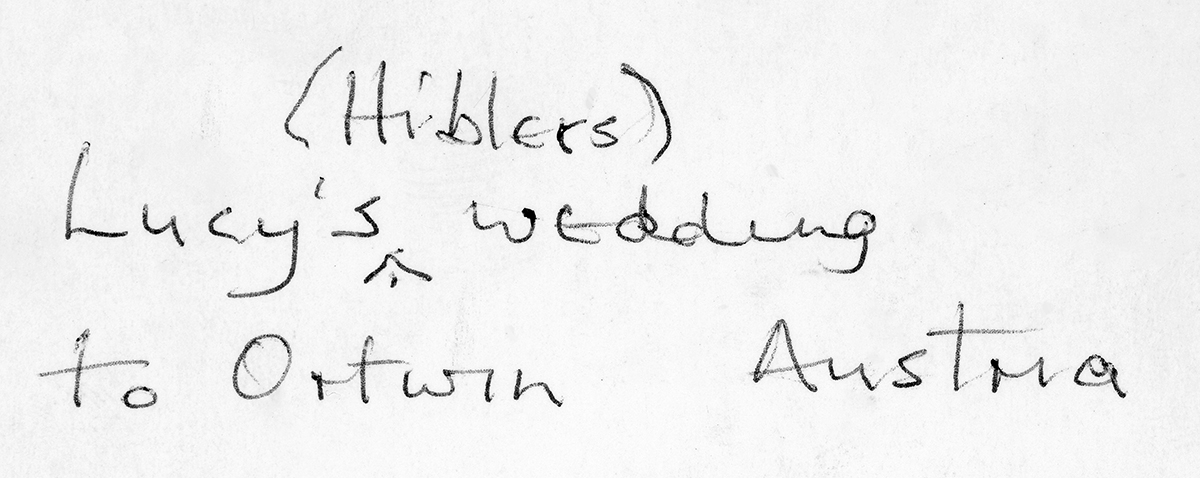 (Hiblers)
Lucy's wedding
to Ortwin Austria